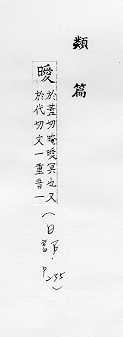 類篇
曖
於蓋切晻曖冥也又
於代切文一重音一
(日部.P235)